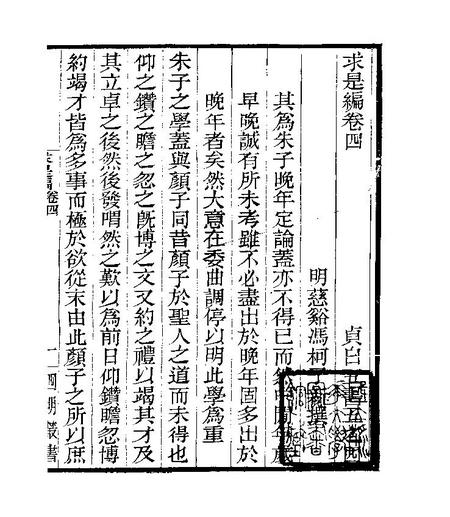 求是編卷四　貞白五
明慈谿馮柯
其爲朱子晚年定論蓋亦不得已而然中間年歲
早晚誠有所未考雖不必盡出於晚年固多出於
晚年者矣然大意在委曲調停以明此學爲重
朱子之學蓋與顏子同昔顏子於聖人之道而未得也
仰之鑽之瞻之忽之旣博之文又約之禮以竭其才及
其立卓之後然後發喟然之歎以爲前日仰鑽瞻忽博
約竭才皆爲多事而極於欲從末由此顏子之所以庶
卷四　一　四明叢書